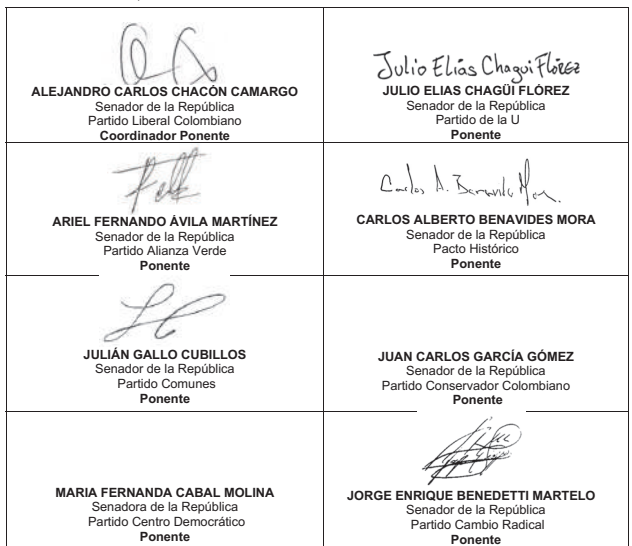 ALEJANDRO CARLOS CHACÓN CAMARGO
Senador de la República
Partido Liberal Colombiano
Coordinador Ponente
Julio Elías Chagui Flórez
JULIO ELIAS CHAGÜI FLÓREZ
Senador de la República
Partido de la U
Ponente
ARIEL FERNANDO ÁVILA MARTÍNEZ
Senador de la República
Partido Alianza Verde
Ponente
CARLOS ALBERTO BENAVIDES MORA
Senador de la República
Pacto Histórico
Ponente
JULIÁN GALLO CUBILLOS
Senador de la República
Partido Comunes
Ponente
JUAN CARLOS GARCÍA GÓMEZ
Senador de la República
Partido Conservador Colombiano
Ponente
MARIA FERNANDA CABAL MOLINA
Senadora de la República
Partido Centro Democrático
Ponente
JORGE ENRIQUE BENEDETTI MARTELO
Senador de la República
Partido Cambio Radical
Ponente